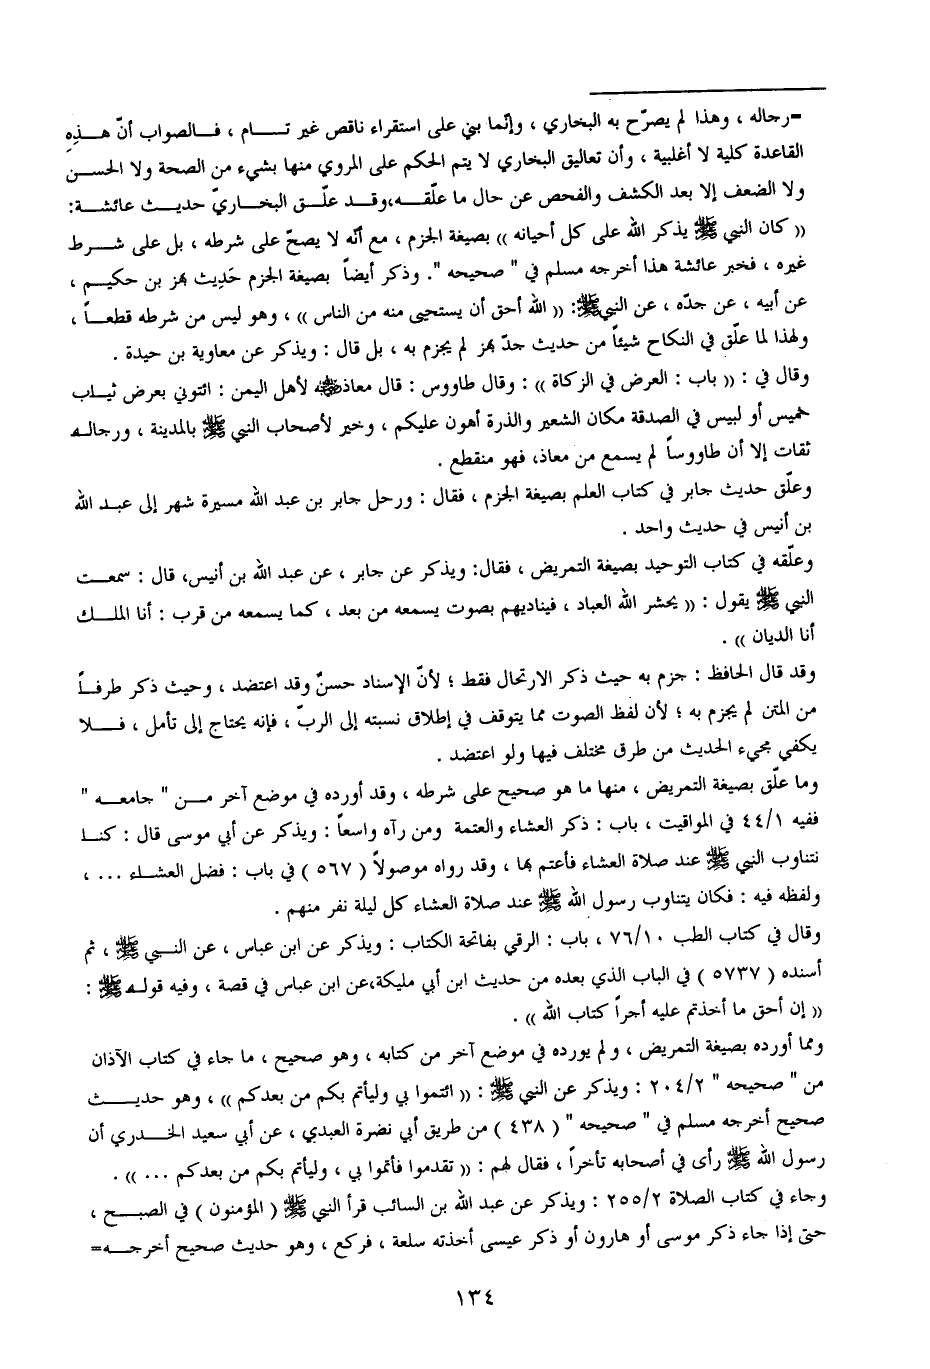 =رجاله ، وهذا لم يصرّح به البخاري ، وإنّما بني على استقراء ناقص غير تـــام ، فـالصواب أنّ هـــذِهِ
القاعدة كلية لا أغلبية ، وأن تعاليق البخاري لا يتم الحكم على المروي منها بشيء من الصحة ولا الحســن
ولا الضعف إلا بعد الكشف والفحص عن حال ما علّقــه،وقــد علّــق البخــاريّ حديــث عائشــة:
(( كان النبي ﷺ يذكر الله على كل أحيانه )) بصيغة الجزم ، مع أنّه لا يصحّ على شرطه ، بل على شــرط
غيره ، فخبر عائشة هذا أخرجه مسلم في " صحيحه ". وذكر أيضاً بصيغة الجزم حَدِيث بهز بن حكيــم ،
عن أبيه ، عن جدّه ، عن النبيﷺ: (( الله أحق أن يستحيى منه من الناس )) ، وهو ليس من شرطه قطعــاً ،
ولهذا لما علّق في النكاح شيئاً من حديث جدّ بهز لم يجزم به ، بل قال : ويذكر عن معاوية بن حيدة .
وقال في : (( باب : العرض في الزكاة )) : وقال طاووس : قال معاذ﷜ لأهل اليمن : ائتوني بعرض ثيــاب
خميس أو لبيس في الصدقة مكان الشعير والذرة أهون عليكم ، وخير لأصحاب النبي ﷺ بالمدينة ، ورجالــه
ثقات إلا أن طاووساً لم يسمع من معاذ، فهو منقطع .
وعلّق حديث جابر في كتاب العلم بصيغة الجزم ، فقال : ورحل جابر بن عبد الله مسيرة شهر إلى عبــد الله
بن أنيس في حديث واحد .
وعلّقه في كتاب التوحيد بصيغة التمريض ، فقال: ويذكر عن جابر ، عن عبد الله بن أنيس، قال : سمعــت
النبي ﷺ يقول : (( يحشر الله العباد ، فيناديهم بصوت يسمعه من بعد ، كما يسمعه من قرب : أنا الملــك
أنا الديان )) .
وقد قال الحافظ : جزم به حيث ذكر الارتحال فقط ؛ لأنّ الإسناد حسنٌ وقد اعتضد ، وحيث ذكر طرفــاً
من المتن لم يجزم به ؛ لأن لفظ الصوت مما يتوقف في إطلاق نسبته إلى الربّ ، فإنه يحتاج إلى تأمل ، فــلا
يكفي مجيء الحديث من طرق مختلف فيها ولو اعتضد .
وما علّق بصيغة التمريض ، منها ما هو صحيح على شرطه ، وقد أورده في موضع آخر مــن " جامعــه "
ففيه ٤٤/١ في المواقيت ، باب : ذكر العشاء والعتمة ومن رآه واسعاً : ويذكر عن أبي موسى قال : كنــا
نتناوب النبي ﷺ عند صلاة العشاء فأعتم بها ، وقد رواه موصولاً ( ٥٦٧ ) في باب : فضل العشــاء ... ،
ولفظه فيه : فكان يتناوب رسول الله ﷺ عند صلاة العشاء كل ليلة نفر منهم .
وقال في كتاب الطب ٧٦/١٠ ، باب : الرقي بفاتحة الكتاب : ويذكر عن ابن عباس ، عن النــبي ﷺ ، ثم
أسنده ( ٥٧٣٧ ) في الباب الذي بعده من حديث ابن أبي مليكة،عن ابن عباس في قصة ، وفيه قولــه ﷺ :
(( إن أحق ما أخذتم عليه أجراً كتاب الله )) .
ومما أورده بصيغة التمريض ، ولم يورده في موضع آخر من كتابه ، وهو صحيح ، ما جاء في كتاب الآذان
من " صحيحه " ٢٠٤/٢ : ويذكر عن النبي ﷺ : (( ائتموا بي وليأتم بكم من بعدكم )) ، وهو حديــث
صحيح أخرجه مسلم في " صحيحه " ( ٤٣٨ ) من طريق أبي نضرة العبدي ، عن أبي سعيد الخــدري أن
رسول الله ﷺ رأى في أصحابه تأخراً ، فقال لهم : (( تقدموا فأتموا بي ، وليأتم بكم من بعدكم ... )) .
وجاء في كتاب الصلاة ٢٥٥/٢ : ويذكر عن عبد الله بن السائب قرأ النبي ﷺ ( المؤمنون ) في الصبــح ،
حتى إذا جاء ذكر موسى أو هارون أو ذكر عيسى أخذته سلعة ، فركع ، وهو حديث صحيح أخرجــه=
١٣٤